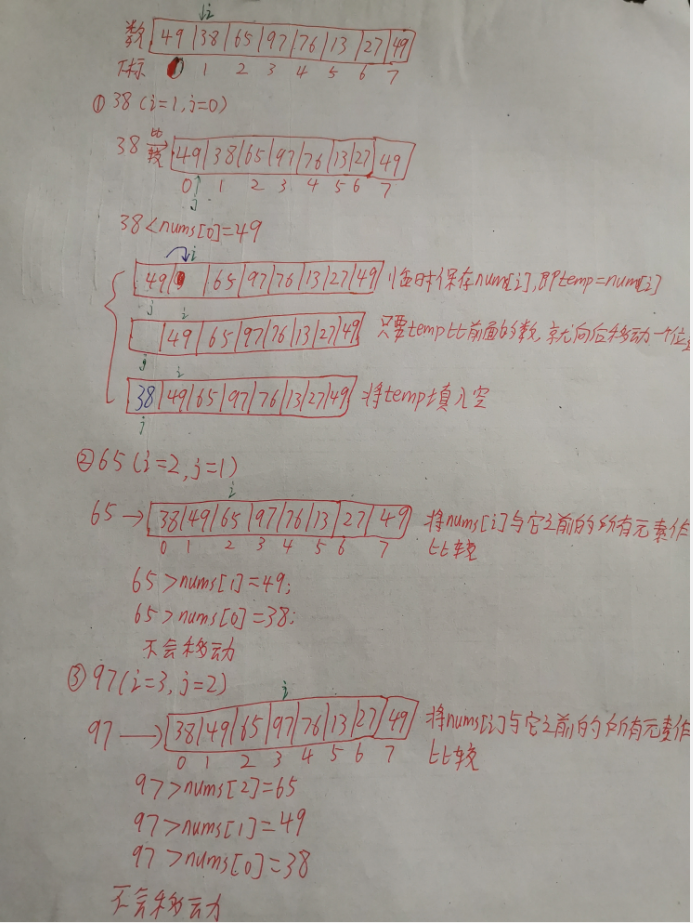 ↓i
数 49 38 65 97 76 13 27 49
下标 0 1 2 3 4 5 6 7
① 38 (i=1,j=0)
38 比较→ 49 38 65 97 76 13 27 49
0 1 2 3 4 5 6 7
j
38<nums[0]=49
i
49 65 97 76 13 27 49 临时保存nums[i],即temp=nums[i]
j i
49 65 97 76 13 27 49 只要temp比前面的数 就向后移动一个位
j i
38 49 65 97 76 13 27 49 将temp填入空
j
② 65 (i=2,j=1)
i
65 → 38 49 65 97 76 13 27 49 将nums[i]与它之前的所有元素作
0 1 2 3 4 5 6 7 比较
65>nums[1]=49;
65>nums[0]=38;
不会移动
③ 97(i=3,j=2)
i
97 → 38 49 65 97 76 13 27 49 将nums[i]与它之前的所有元素作
0 1 2 3 4 5 6 7 比较
97>nums[2]=65
97>nums[1]=49
97>nums[0]=38
不会移动